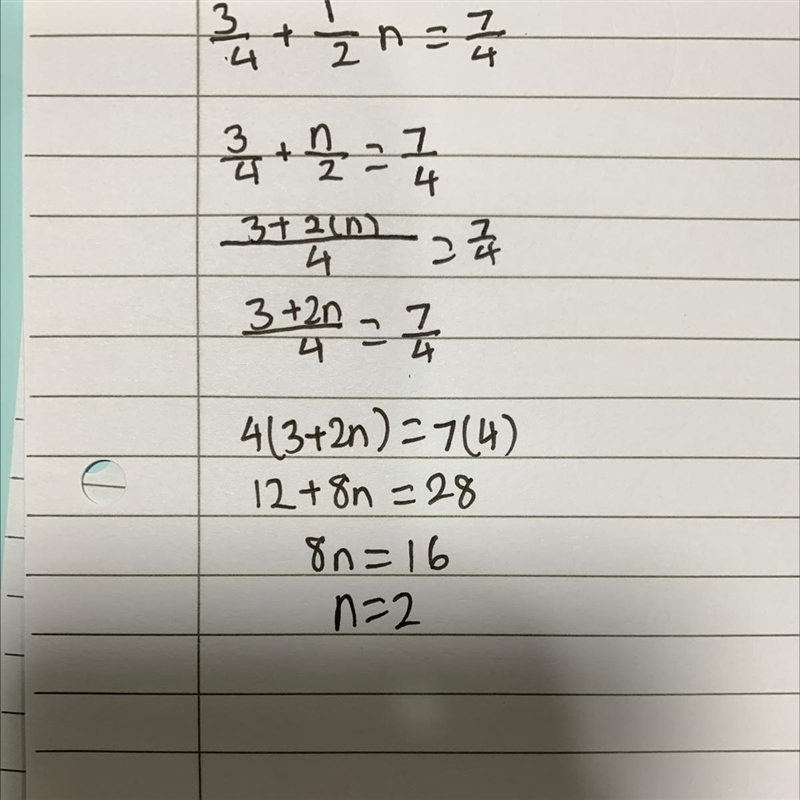 3/4 + 1/2 n = 7/4
3/4 + n/2 = 7/4
3+2(n)/4 = 7/4
3+2n/4 = 7/4
4(3+2n) = 7(4)
12+8n = 28
8n = 16
n = 2